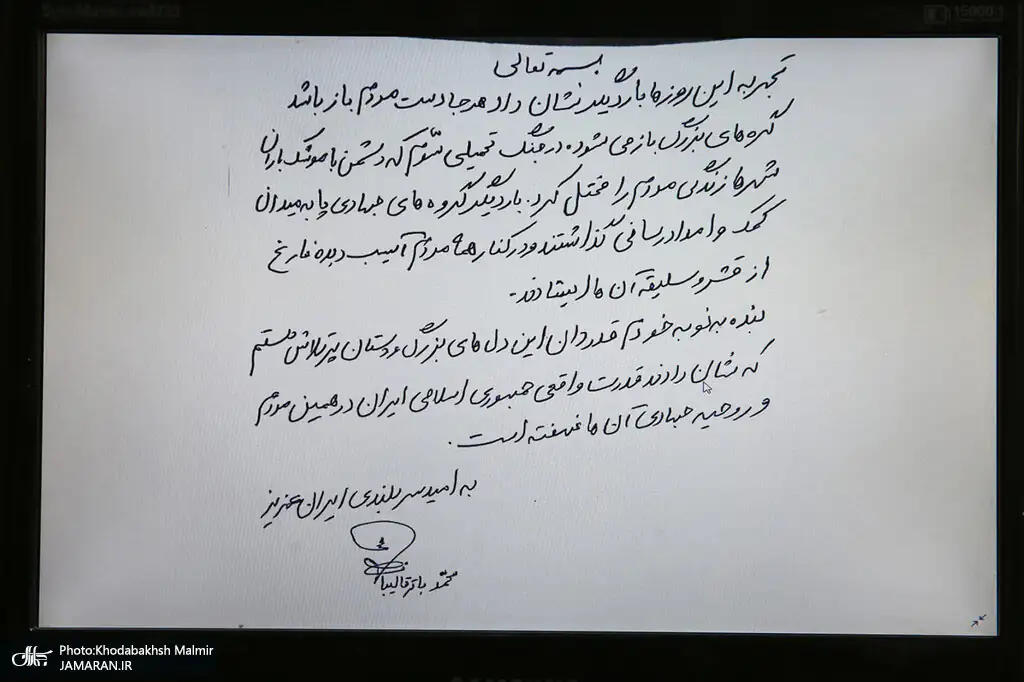 بسمه تعالی
تجربه این روزها بار دیگر نشان داد هر جا دست مردم باز باشد
گره‌های بزرگ باز می‌شود. در جنگ تحمیلی سوّم که دشمن با موشک باران
شهرها زندگی مردم را مختل کرد. بار دیگر گروه‌های جهادی پا به میدان
کمک و امدادرسانی گذاشتند و در کنار همه مردم آسیب دیده فارغ
از قشر و سلیقه آن‌ها ایستادند.
بنده به نوبه خودم قدردان این دل‌های بزرگ و دستان پرتلاش هستم
که نشان دادند قدرت واقعی جمهوری اسلامی ایران در همین مردم
و روحیه جهادی آن‌ها نهفته است.
به امید سربلندی ایران عزیز
محمّد باقر قالیباف
Photo:Khodabakhsh Malmir
JAMARAN.IR